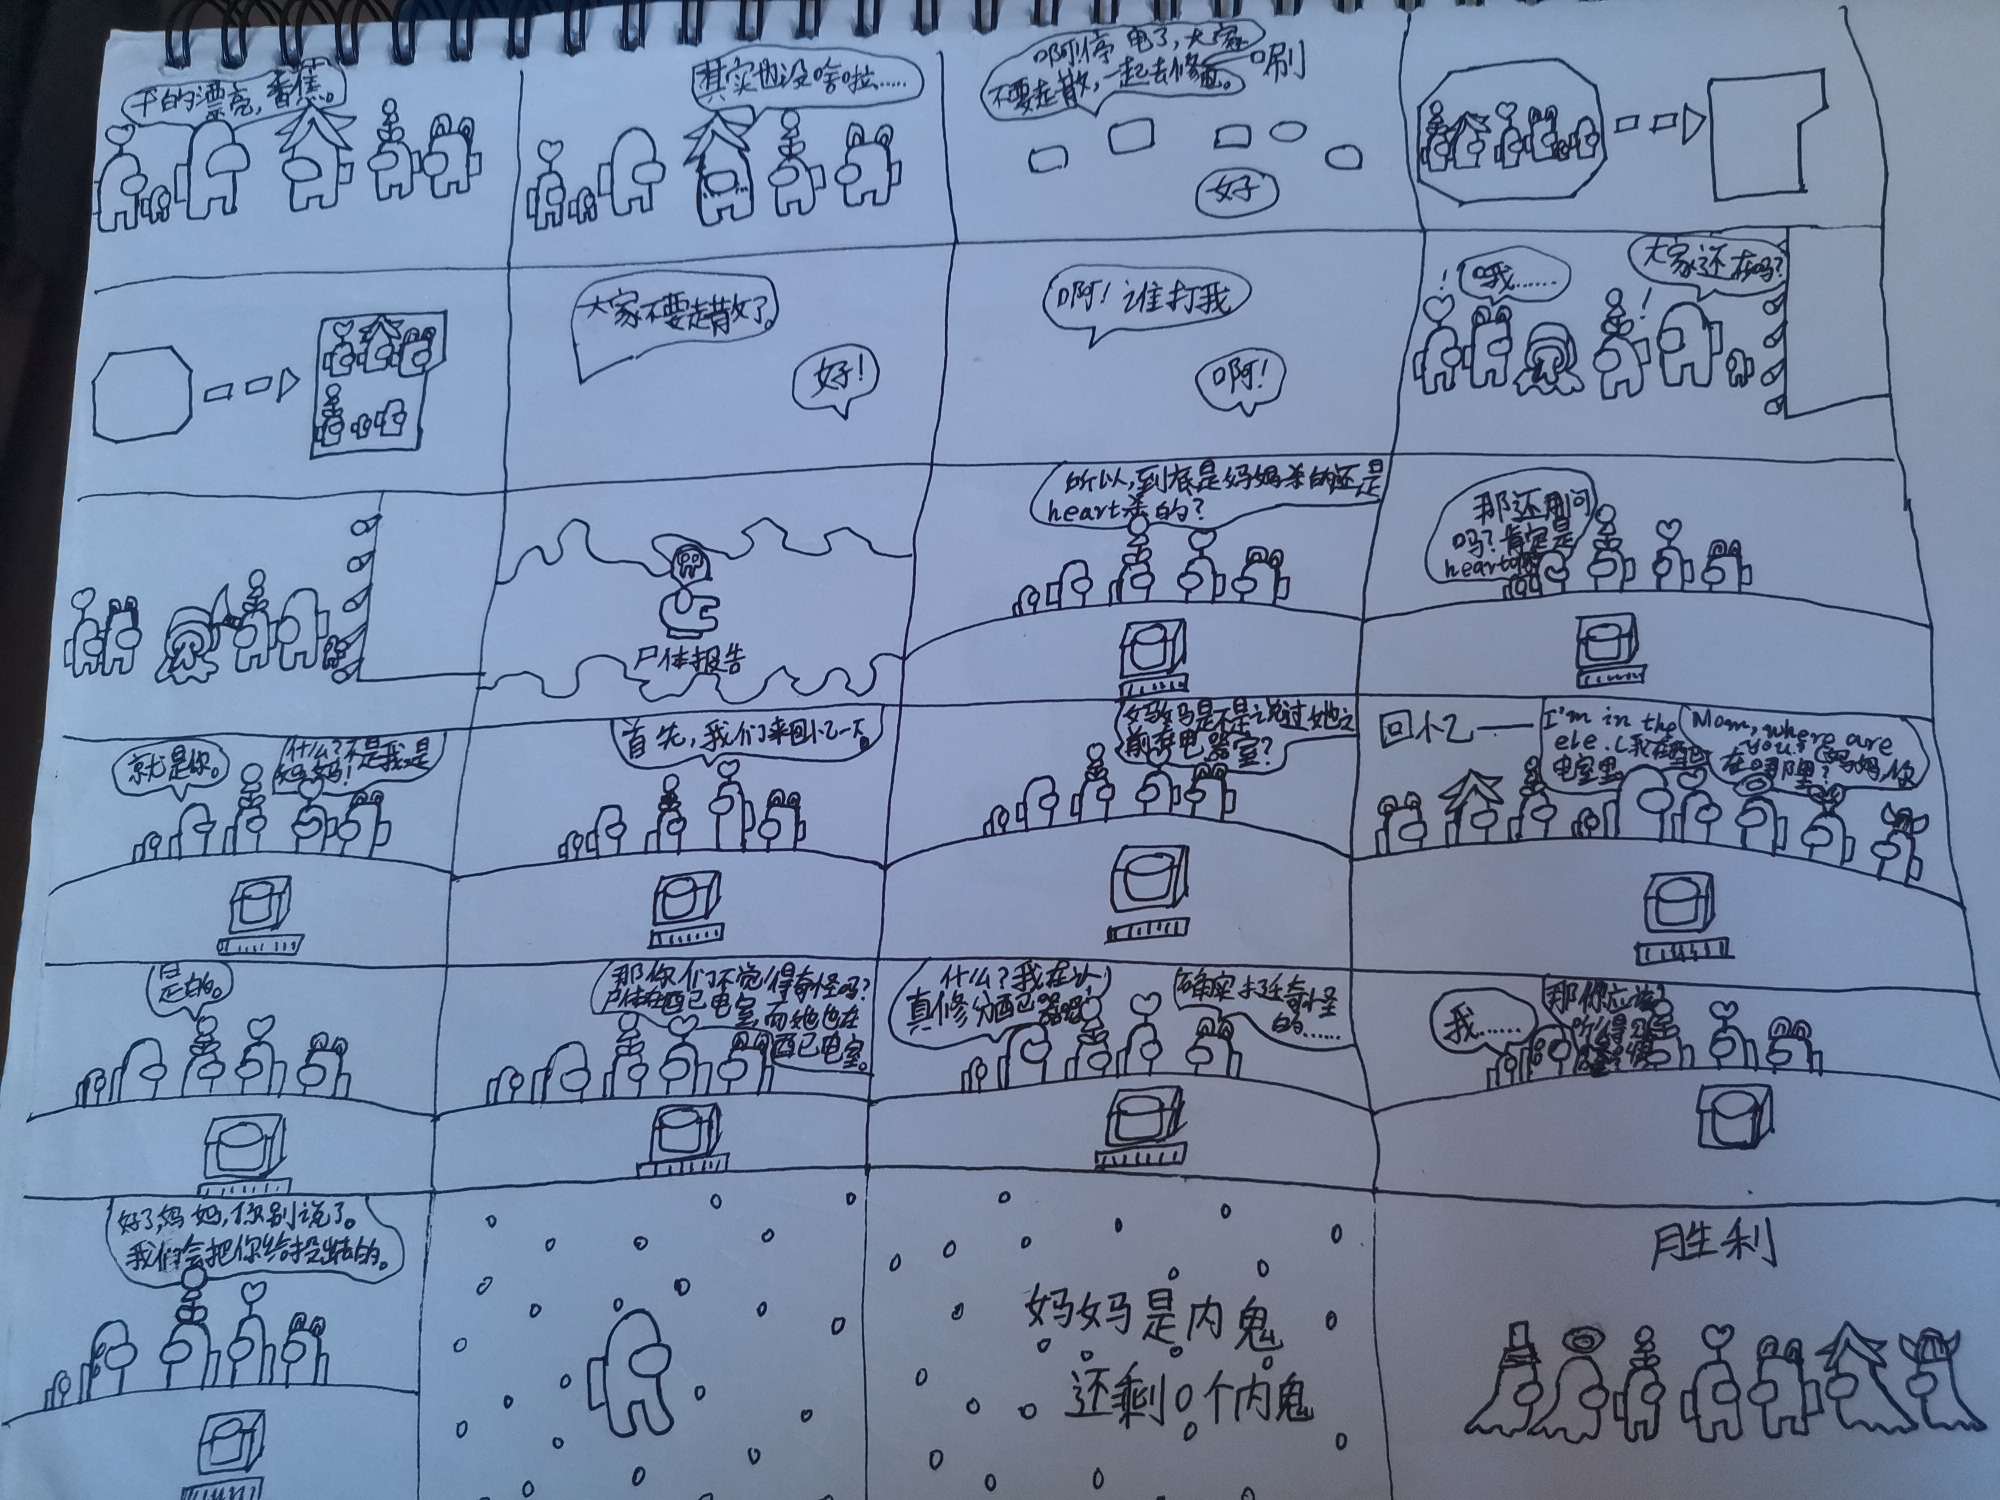 干的漂亮,香蕉。
其实也没啥啦……
啊!停电了,大家
不要走散,一起去修电。
唰
好
大家不要走散了。
好!
啊!谁打我
啊!
!
哦……
!
大家还在吗?
尸体报告
所以,到底是妈妈杀的还是
heart杀的?
那还用问
吗?肯定是
heart
就是你。
什么?不是我是
妈妈!
首先,我们来回忆一下
妈妈是不是说过她之
前在电器室?
回忆——
I'm in the
ele.(我在配
电室里
Mom, where are
you?(妈妈,你
在哪里?
是的。
那你们不觉得奇怪吗?
尸体在配电室,而她也在
配电室。
什么?我在认
真修分配器呢!
确实挺奇怪
的……
我……
那你应该
听得
好了,妈妈,你别说了。
我们会把你给投出去的。
妈妈是内鬼
还剩0个内鬼
胜利